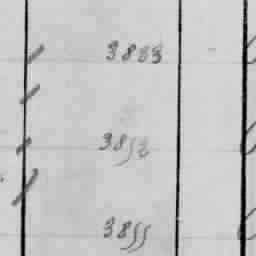 3883
3852
3855